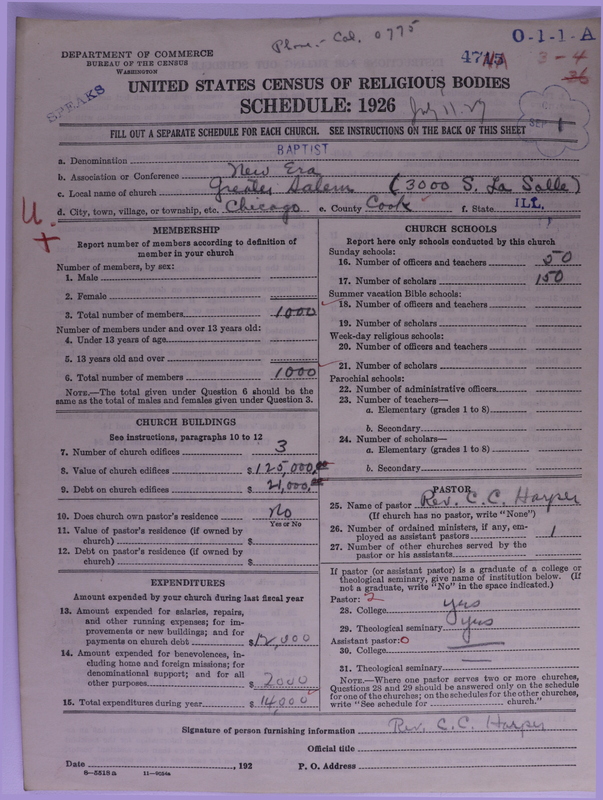 Phone - Cal. 0775
O-1-1-A
DEPARTMENT OF COMMERCE
BUREAU OF THE CENSUS
WASHINGTON
3-4
36
SPEAKS
UNITED STATES CENSUS OF RELIGIOUS BODIES
SCHEDULE: 1926
July 11.27
SEP 1
FILL OUT A SEPARATE SCHEDULE FOR EACH CHURCH. SEE INSTRUCTIONS ON THE BACK OF THIS SHEET
a. Denomination BAPTIST
b. Association or Conference New Era
c. Local name of church Greater Salem (3000 S. La Salle)
d. City, town, village, or township, etc. Chicago e. County Cook f. State ILL.
U.
MEMBERSHIP
Report number of members according to definition of
member in your church
Number of members, by sex:
1. Male
2. Female
3. Total number of members 1000
Number of members under and over 13 years old:
4. Under 13 years of age
5. 13 years old and over
6. Total number of members 1000
NOTE.—The total given under Question 6 should be the
same as the total of males and females given under Question 3.
CHURCH BUILDINGS
See instructions, paragraphs 10 to 12
7. Number of church edifices 3
8. Value of church edifices $125,000.00
9. Debt on church edifices $21,000.00
10. Does church own pastor's residence No
Yes or No
11. Value of pastor's residence (if owned by
church) $
12. Debt on pastor's residence (if owned by
church) $
EXPENDITURES
Amount expended by your church during last fiscal year
13. Amount expended for salaries, repairs,
and other running expenses; for im-
provements or new buildings; and for
payments on church debt $12,000
14. Amount expended for benevolences, in-
cluding home and foreign missions; for
denominational support; and for all
other purposes $2000
15. Total expenditures during year $14,000
CHURCH SCHOOLS
Report here only schools conducted by this church
Sunday schools:
16. Number of officers and teachers 50
17. Number of scholars 150
Summer vacation Bible schools:
18. Number of officers and teachers
19. Number of scholars
Week-day religious schools:
20. Number of officers and teachers
21. Number of scholars
Parochial schools:
22. Number of administrative officers
23. Number of teachers—
a. Elementary (grades 1 to 8)
b. Secondary
24. Number of scholars—
a. Elementary (grades 1 to 8)
b. Secondary
PASTOR
25. Name of pastor Rev. C. C. Harper
(If church has no pastor, write "None")
26. Number of ordained ministers, if any, em-
ployed as assistant pastors 1
27. Number of other churches served by the
pastor or his assistants
If pastor (or assistant pastor) is a graduate of a college or
theological seminary, give name of institution below. (If
not a graduate, write "No" in the space indicated.)
Pastor: 2
28. College yes
29. Theological seminary yes
Assistant pastor: 0
30. College
31. Theological seminary
NOTE.—Where one pastor serves two or more churches,
Questions 28 and 29 should be answered only on the schedule
for one of the churches; on the schedules for the other churches,
write "See schedule for church."
Signature of person furnishing information Rev. C. C. Harper
Official title
Date , 192 P. O. Address
8-5518a 11-9024a